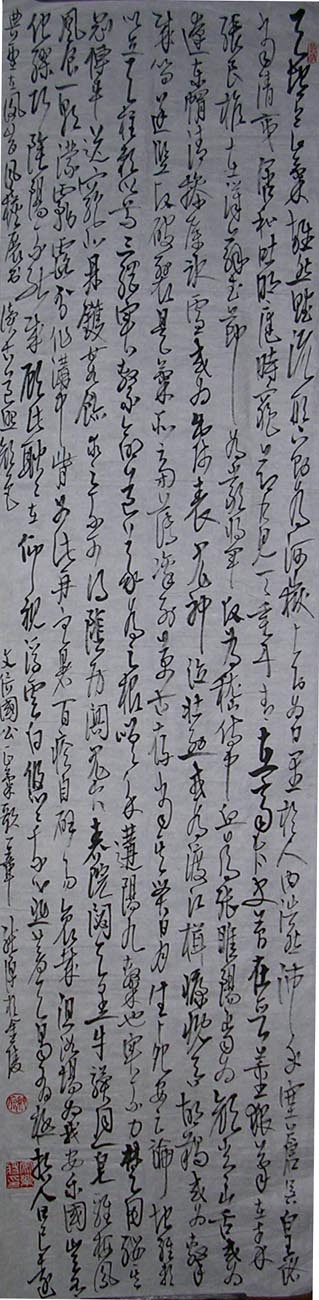 天地有正氣雜然賦流形下則為河嶽上則為日星於人曰浩然沛乎塞蒼冥皇路
當清夷含和吐明庭時窮節乃見一一垂丹青在齊太史簡在晉董狐筆在秦
張良椎在漢蘇武節為嚴將軍頭為嵇侍中血為張睢陽齒為顏常山舌或為
遼東帽清操厲冰雪或為出師表鬼神泣壯烈或為渡江楫慷慨吞胡羯或為擊
賊笏逆豎頭破裂是氣所磅礴凜烈萬古存當其貫日月生死安足論地維賴
以立天柱賴以尊三綱實繫命道義為之根嗟予遘陽九隸也實不力楚囚纓其
冠傳車送窮北鼎鑊甘如飴求之不可得陰房闃鬼火春院閟天黑牛驥同一皂雞棲鳳
凰食一朝濛霧露分作溝中瘠如此再寒暑百沴自辟易哀哉沮洳場為我安樂國豈有
他繆巧陰陽不能賊顧此耿耿在仰視浮雲白悠悠我心悲蒼天曷有極哲人日已遠
典型在夙昔風檐展書讀古道照顏色
文信國公正氣歌一章 於金陵